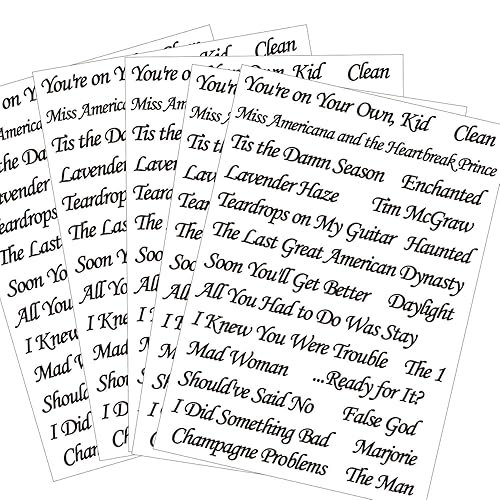 You're on Your Own, Kid Clean
Miss Americana and the Heartbreak Prince
Tis the Damn Season Enchanted
Lavender Haze Tim McGraw
Teardrops on My Guitar Haunted
The Last Great American Dynasty
Soon You'll Get Better Daylight
All You Had to Do Was Stay
I Knew You Were Trouble The 1
Mad Woman ...Ready for It?
Should've Said No False God
I Did Something Bad Marjorie
Champagne Problems The Man